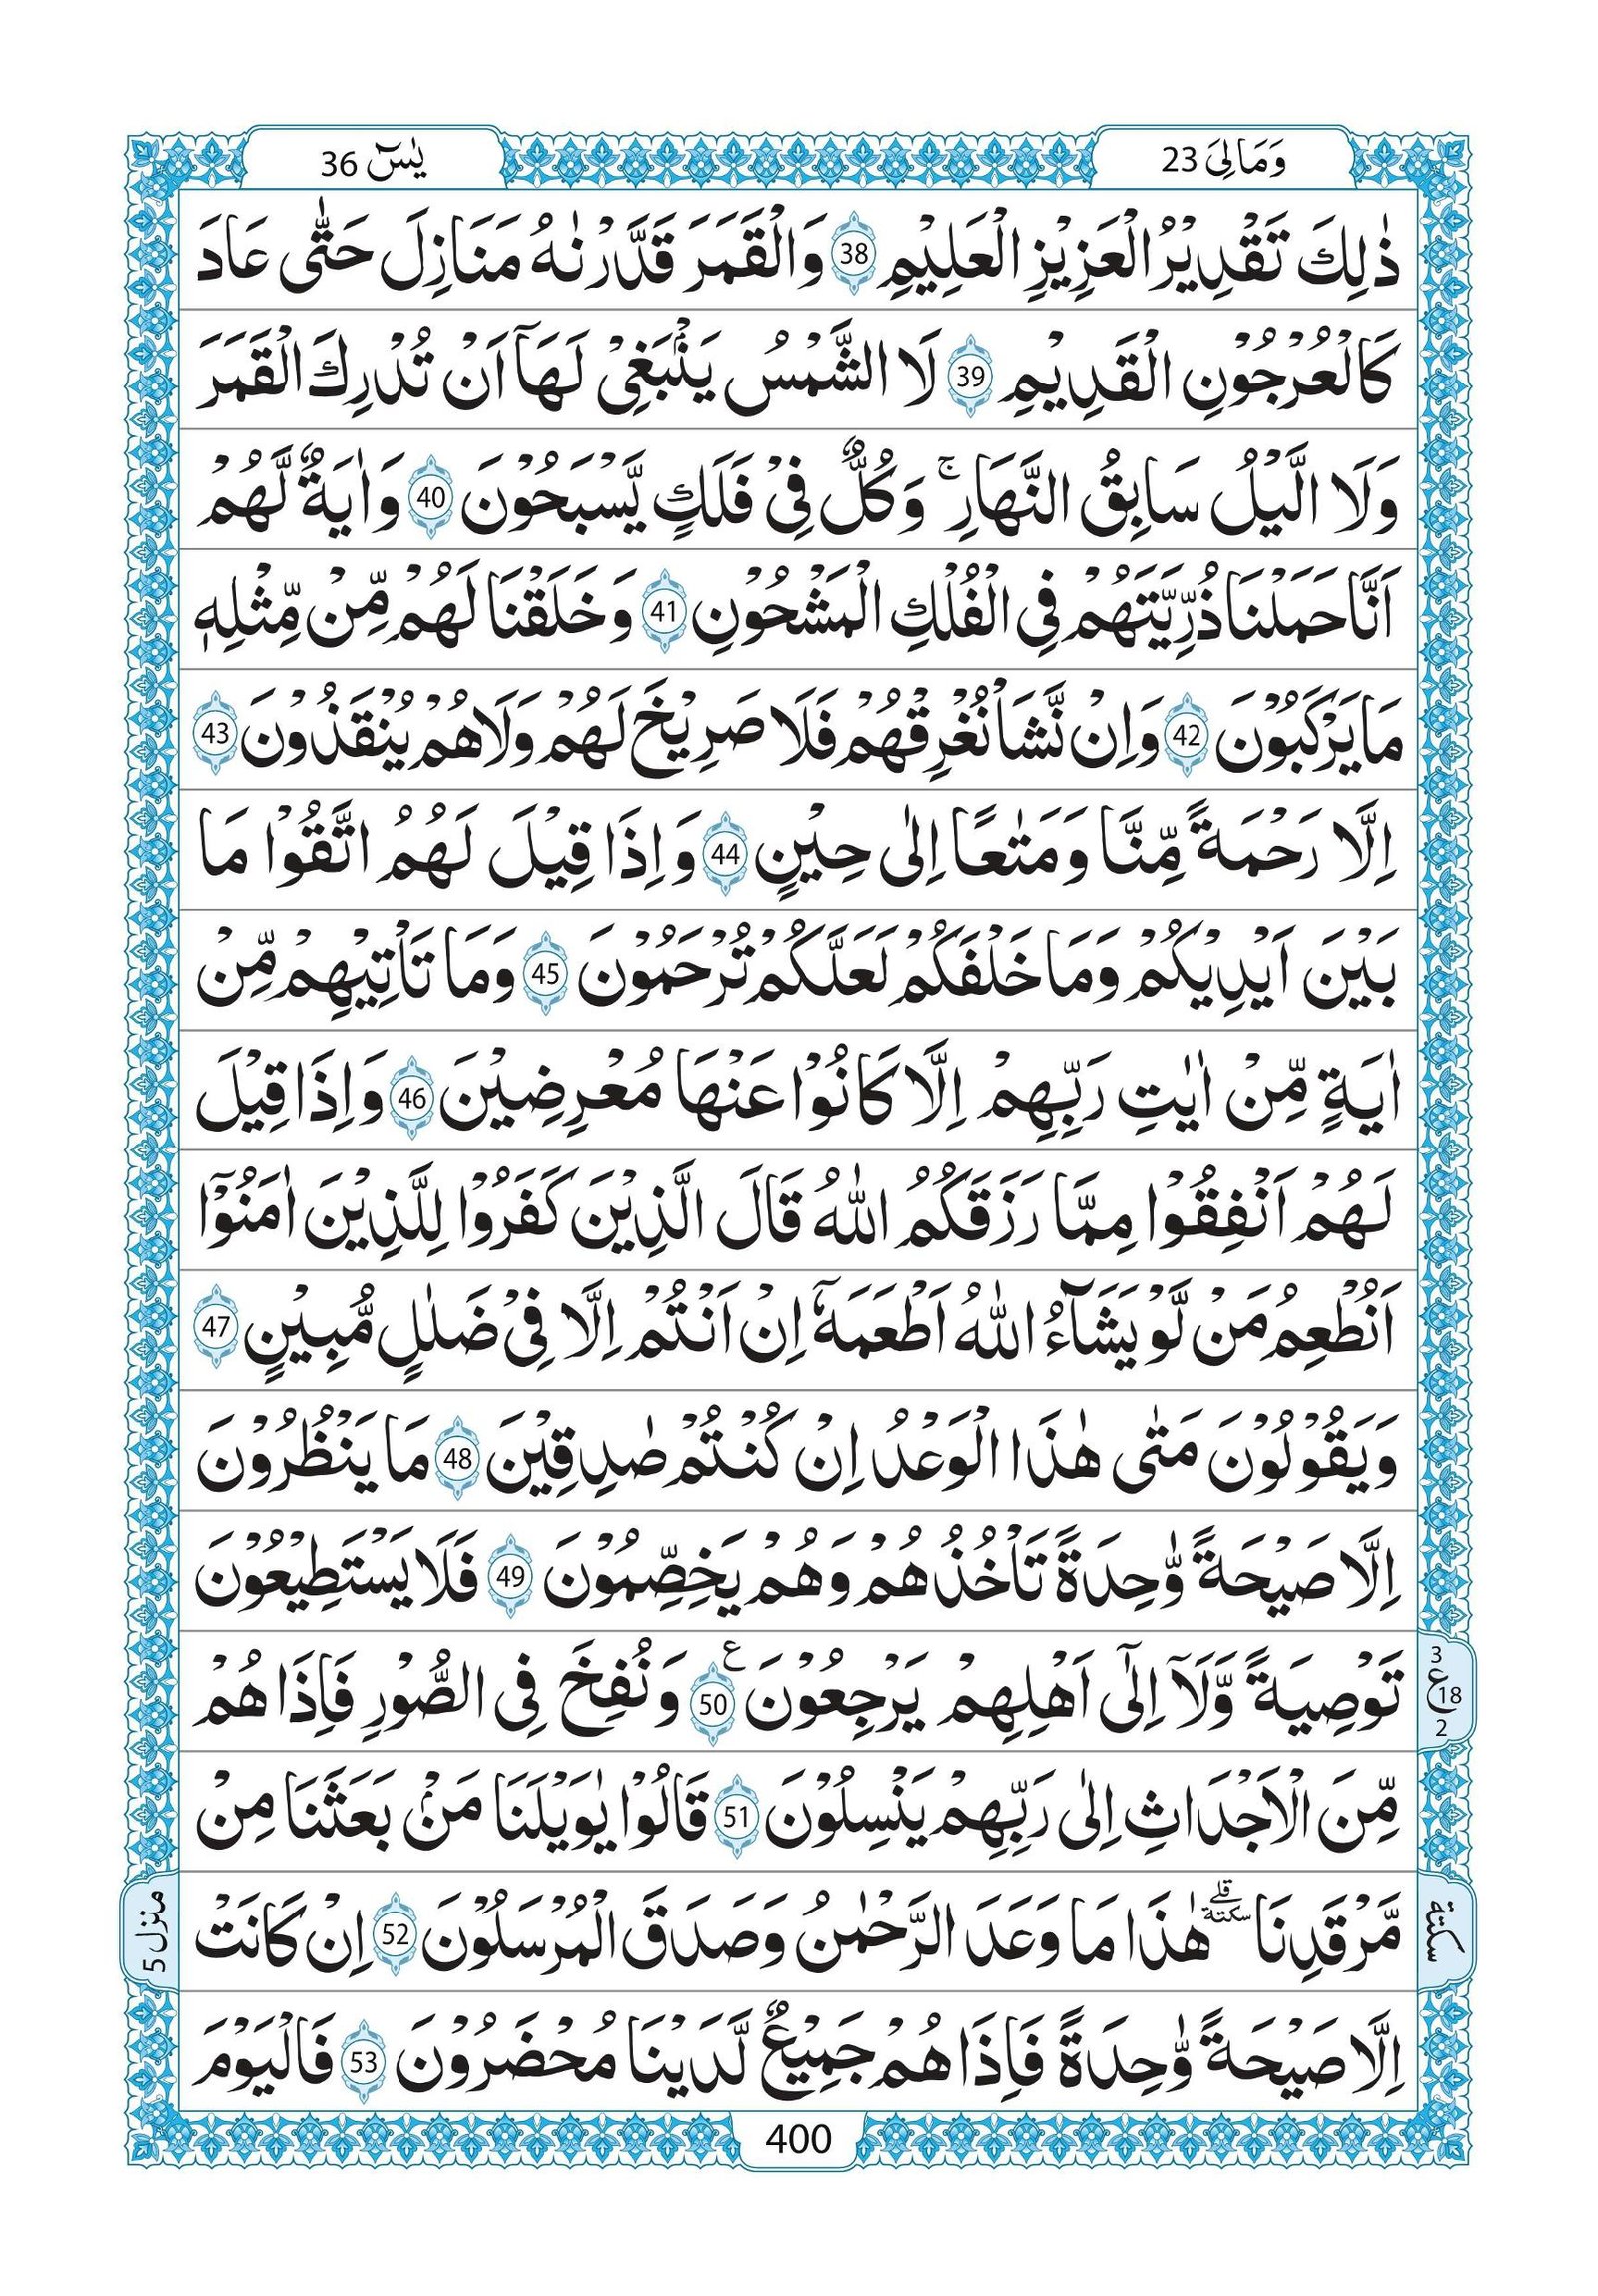 وَمَالِیَ 23
یٰسٓ 36
ذٰلِكَ تَقْدِیْرُ الْعَزِیْزِ الْعَلِیْمِ 38 وَالْقَمَرَ قَدَّرْنٰهُ مَنَازِلَ حَتّٰی عَادَ
كَالْعُرْجُوْنِ الْقَدِیْمِ 39 لَا الشَّمْسُ یَنْۢبَغِیْ لَهَاۤ اَنْ تُدْرِكَ الْقَمَرَ
وَلَا الَّیْلُ سَابِقُ النَّهَارِ ۚ وَكُلٌّ فِیْ فَلَكٍ یَّسْبَحُوْنَ 40 وَاٰیَةٌ لَّهُمْ
اَنَّا حَمَلْنَا ذُرِّیَّتَهُمْ فِی الْفُلْكِ الْمَشْحُوْنِ 41 وَخَلَقْنَا لَهُمْ مِّنْ مِّثْلِهٖ
مَا یَرْكَبُوْنَ 42 وَاِنْ نَّشَاْ نُغْرِقْهُمْ فَلَا صَرِیْخَ لَهُمْ وَلَا هُمْ یُنْقَذُوْنَ 43
اِلَّا رَحْمَةً مِّنَّا وَمَتٰعًا اِلٰی حِیْنٍ 44 وَاِذَا قِیْلَ لَهُمُ اتَّقُوْا مَا
بَیْنَ اَیْدِیْكُمْ وَمَا خَلْفَكُمْ لَعَلَّكُمْ تُرْحَمُوْنَ 45 وَمَا تَاْتِیْهِمْ مِّنْ
اٰیَةٍ مِّنْ اٰیٰتِ رَبِّهِمْ اِلَّا كَانُوْا عَنْهَا مُعْرِضِیْنَ 46 وَاِذَا قِیْلَ
لَهُمْ اَنْفِقُوْا مِمَّا رَزَقَكُمُ اللّٰهُ قَالَ الَّذِیْنَ كَفَرُوْا لِلَّذِیْنَ اٰمَنُوْۤا
اَنُطْعِمُ مَنْ لَّوْ یَشَآءُ اللّٰهُ اَطْعَمَهٗۤ اِنْ اَنْتُمْ اِلَّا فِیْ ضَلٰلٍ مُّبِیْنٍ 47
وَیَقُوْلُوْنَ مَتٰی هٰذَا الْوَعْدُ اِنْ كُنْتُمْ صٰدِقِیْنَ 48 مَا یَنْظُرُوْنَ
اِلَّا صَیْحَةً وَّٰحِدَةً تَاْخُذُهُمْ وَهُمْ یَخِصِّمُوْنَ 49 فَلَا یَسْتَطِیْعُوْنَ
تَوْصِیَةً وَّلَاۤ اِلٰۤی اَهْلِهِمْ یَرْجِعُوْنَ 50 ع وَنُفِخَ فِی الصُّوْرِ فَاِذَا هُمْ
3
ع 18
2
مِّنَ الْاَجْدَاثِ اِلٰی رَبِّهِمْ یَنْسِلُوْنَ 51 قَالُوْا یٰوَیْلَنَا مَنْۢ بَعَثَنَا مِنْ
مَّرْقَدِنَا ۘ قلے سكتة هٰذَا مَا وَعَدَ الرَّحْمٰنُ وَصَدَقَ الْمُرْسَلُوْنَ 52 اِنْ كَانَتْ
سكتة
منزل 5
اِلَّا صَیْحَةً وَّٰحِدَةً فَاِذَا هُمْ جَمِیْعٌ لَّدَیْنَا مُحْضَرُوْنَ 53 فَالْیَوْمَ
400